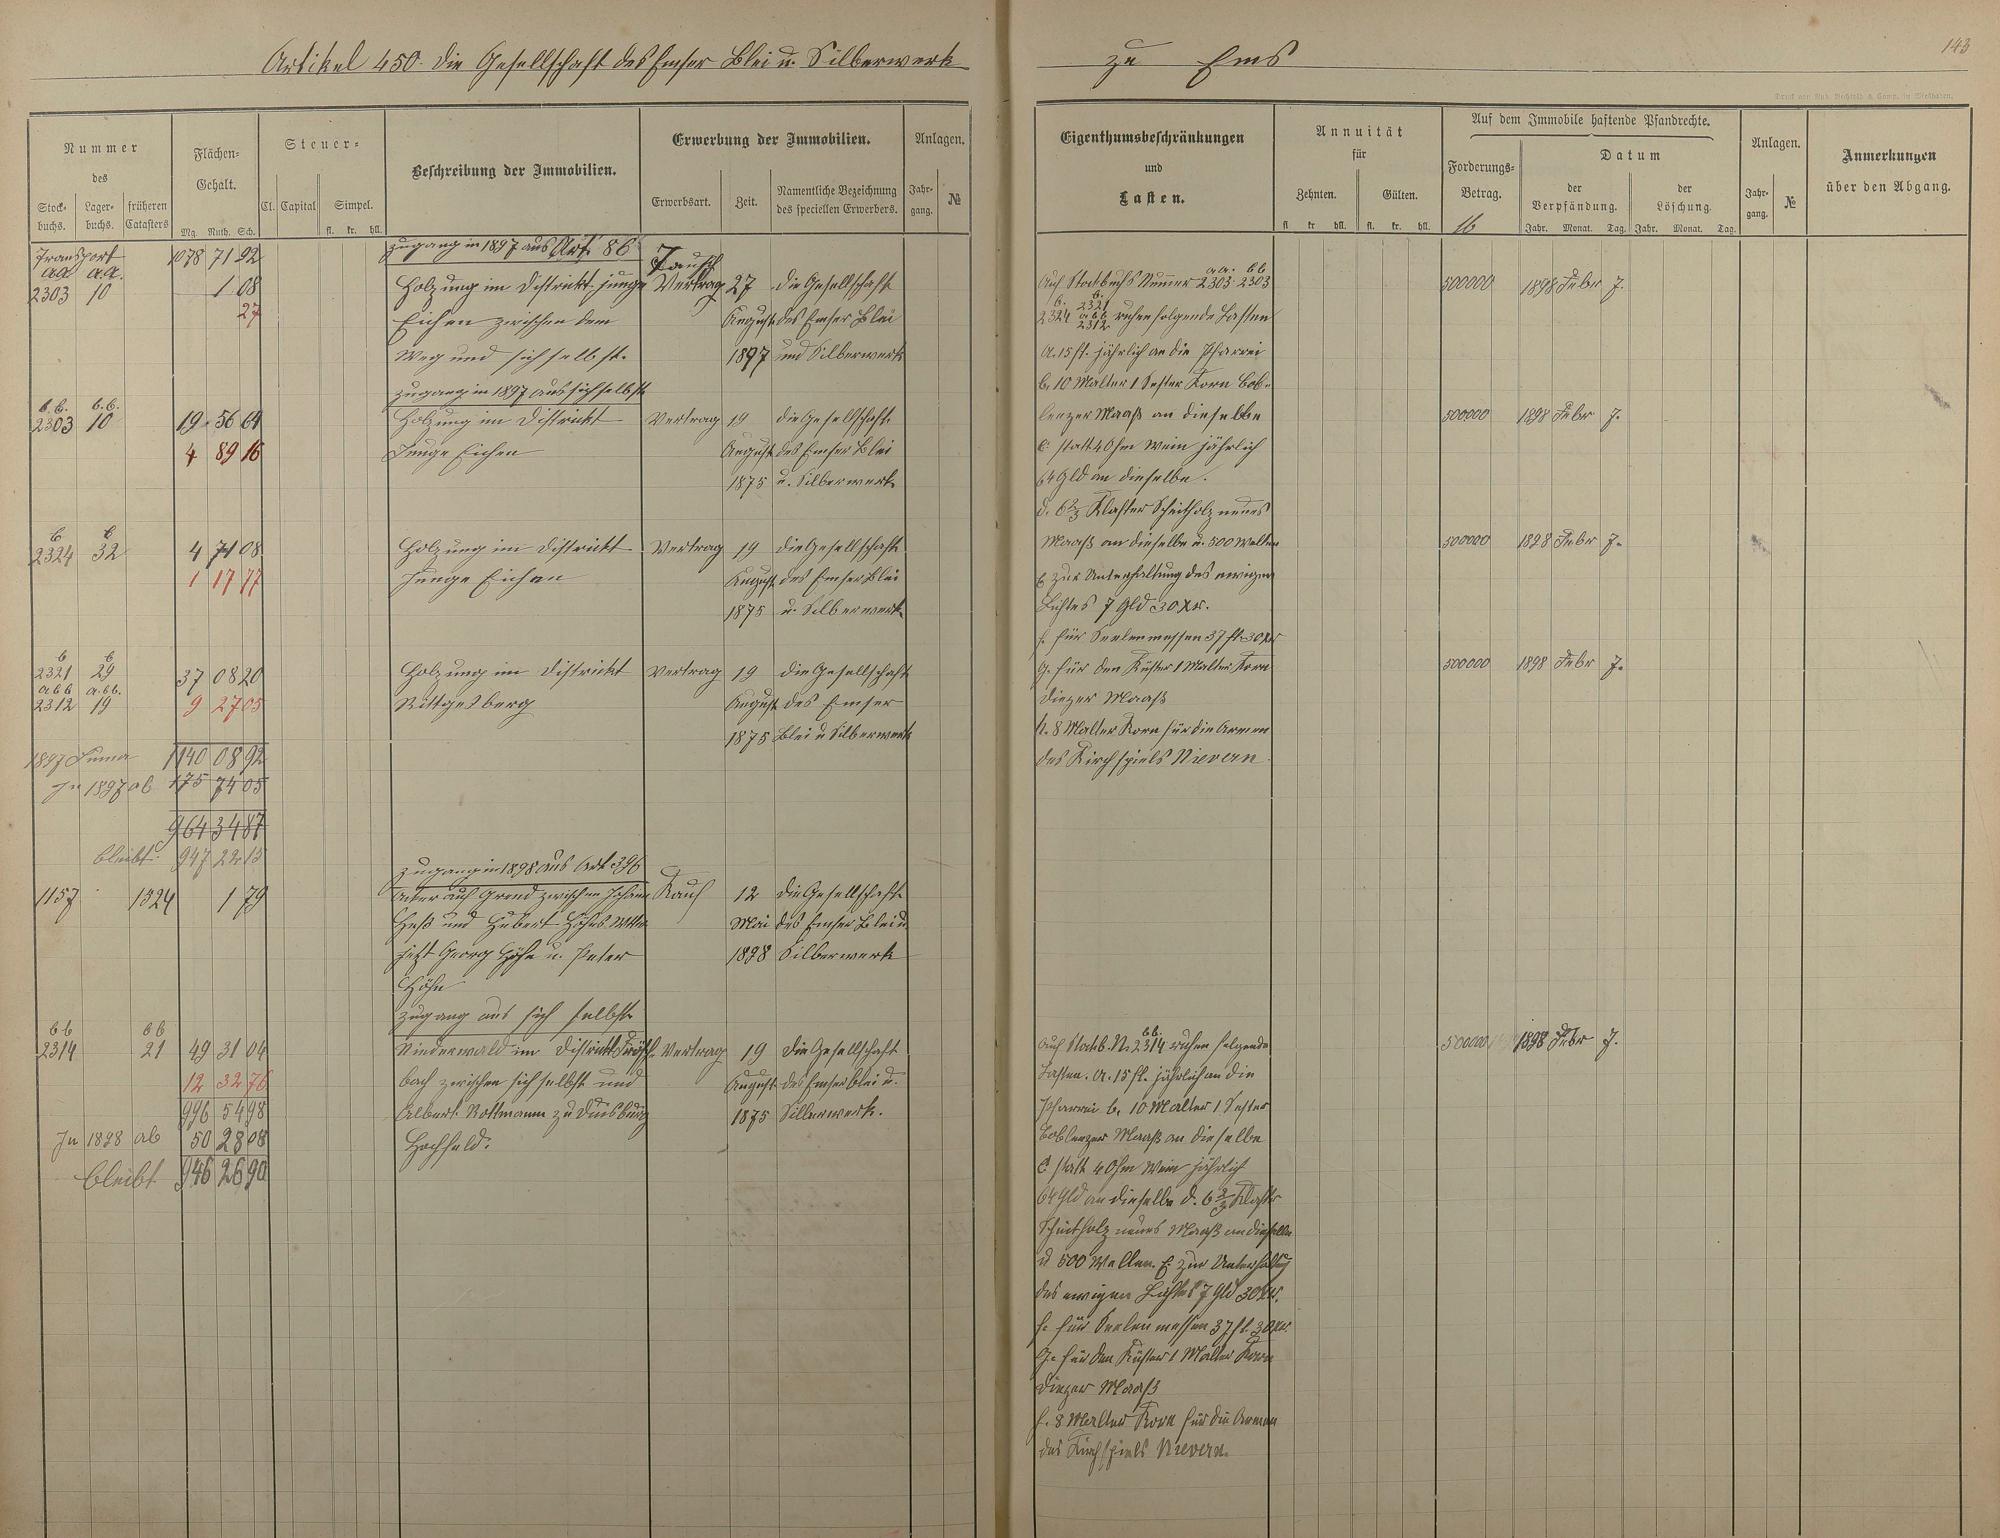 Artikel 450. die Gesellschaft des Emser Blei u. Silberwerk zu Ems
143
Druck von Rud. Bechtold & Comp. in Wiesbaden.
Nummer
des
Stock-
buchs.
Lager-
buchs.
früheren
Catasters
Flächen-
Gehalt.
Mg. Ruth. Sch.
Steuer-
Cl. Capital Simpel.
fl. kr. hll.
Beschreibung der Immobilien.
Erwerbung der Immobilien.
Erwerbsart. Zeit.
Namentliche Bezeichnung
des speciellen Erwerbers.
Anlagen.
Jahr-
gang.
№
Eigenthumsbeschränkungen
und
Lasten.
Annuität
für
Zehnten. Gülten.
fl. kr. hll. fl. kr. hll.
Auf dem Immobile haftende Pfandrechte.
Forderungs-
Betrag.
Datum
der
Verpfändung.
der
Löschung.
Jahr. Monat. Tag. Jahr. Monat. Tag.
Anlagen.
Jahr-
gang.
№
Anmerkungen
über den Abgang.
Transport 1078 71 92
Zugang in 1897 aus Art. 86
aa a.a.
2303 10 1 08 Holzung im Distrikt junge Tausch Vertrag 27 die Gesellschaft
27 Eichen zwischen dem August des Emser Blei
Weg und sich selbst. 1897 und Silberwerk
Zugang in 1897 aus sich selbst
b.b. b.b.
2303 10 19 56 64 Holzung im Distrikt Vertrag 19 die Gesellschaft
4 89 16 Junge Eichen August des Emser Blei
1875 u. Silberwerk
b b
2324 32 4 71 08 Holzung im Distrikt Vertrag 19 die Gesellschaft
1 17 77 Junge Eichen August des Emser Blei
1875 u. Silberwerk
b b
2321 29 37 08 20 Holzung im Distrikt Vertrag 19 die Gesellschaft
abb a.bb.
2312 19 9 27 05 Rittgesberg August des Emser
1875 Blei u Silberwerk
1897 Suma 1140 08 92
In 1897 ab 175 74 05
964 34 87
bleibt: 947 22 15
Zugang in 1898 aus Art 396
1157 1324 1 79 Acker auf Grend zwischen Johann Kauf 12 die Gesellschaft
Heß und Hubert Höhns Mai des Emser Blei u
jetzt Georg Höhn u. Peter 1898 Silberwerk
Höhn
Zugang aus sich selbst
bb bb
2314 21 49 31 04 Niederwald im Distrikt Vertrag 19 die Gesellschaft
12 32 76 bach zwischen sich selbst und August des Emser Blei u.
996 54 98 Albert Rottmann zu Duisburg 1875 Silberwerk.
In 1898 ab 50 28 08 Hochfeld.
bleibt 946 26 90
Auf Stockbuchs Nummer aa. 2303 bb 2303
b. 2324 b. 2321 abb 2312 ruhen folgende Lasten
a. 15 fl. jährlich an die Pfarrei
b. 10 Malter 1 Sester Korn Cob-
lenzer Maaß an dieselbe
c. statt 4 Ohm Wein jährlich
64 Gld an dieselbe.
d. 6 2/3 Klafter Scheitholz neues
Maaß an dieselbe u. 500 Wellen
e zur Unterhaltung des ewigen
Lichtes 7 Gld 30 Xr.
f. für Seelenmessen 37 fl. 30 Xr
g. für den Küster 1 Malter Korn
Diezer Maaß
h. 8 Malter Korn für die Armen
des Kirchspiels Nievern.
500000 1898 Febr 7.
500000 1898 Febr 7.
500000 1898 Febr 7.
500000 1898 Febr 7.
Auf Stockb. N. bb. 2314 ruhen folgende
Lasten. a. 15 fl. jährlich an die
Pfarrei b. 10 Malter 1 Sester
Coblenzer Maaß an dieselbe
c statt 4 Ohm Wein jährlich
64 Gld an dieselbe d. 6 2/3 Klafter
Scheitholz neues Maaß an dieselbe
u 500 Wellen. e. zur Unterhaltung
des ewigen Lichtes 7 Gld 30 Xr.
f. für Seelenmessen 37 fl. 30 Xr.
g. für den Küster 1 Malter Korn
Diezer Maaß
h. 8 Malter Korn für die Armen
des Kirchspiels Nievern.
500000 1898 Febr 7.